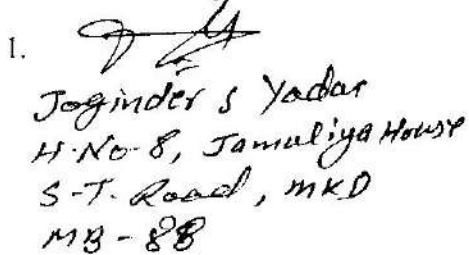 1.
Joginder S Yadav
H.No-8, Jamaliya House
S-T. Road, MKD
MB-88